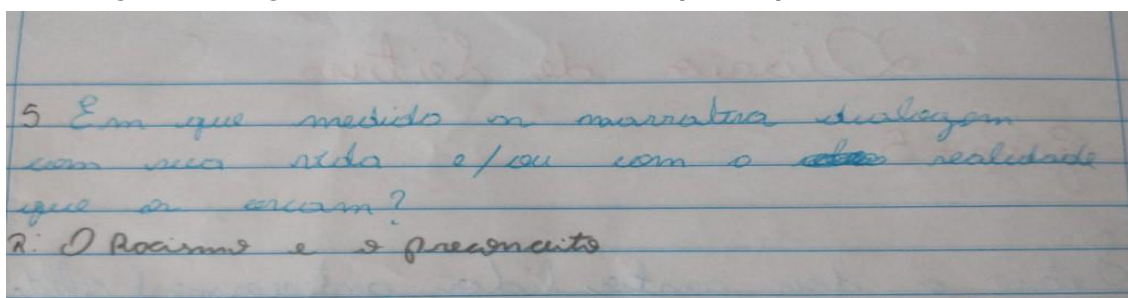 5 Em que medida a narrativa dialogam
com sua vida e/ou com a realidade
que os cercam?
R: O Racismo e o preconceito